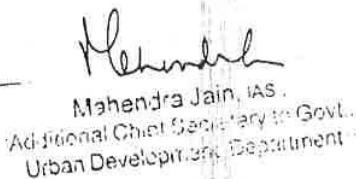 Mahendra
Mahendra Jain, IAS.
Additional Chief Secretary to Govt.,
Urban Development Department